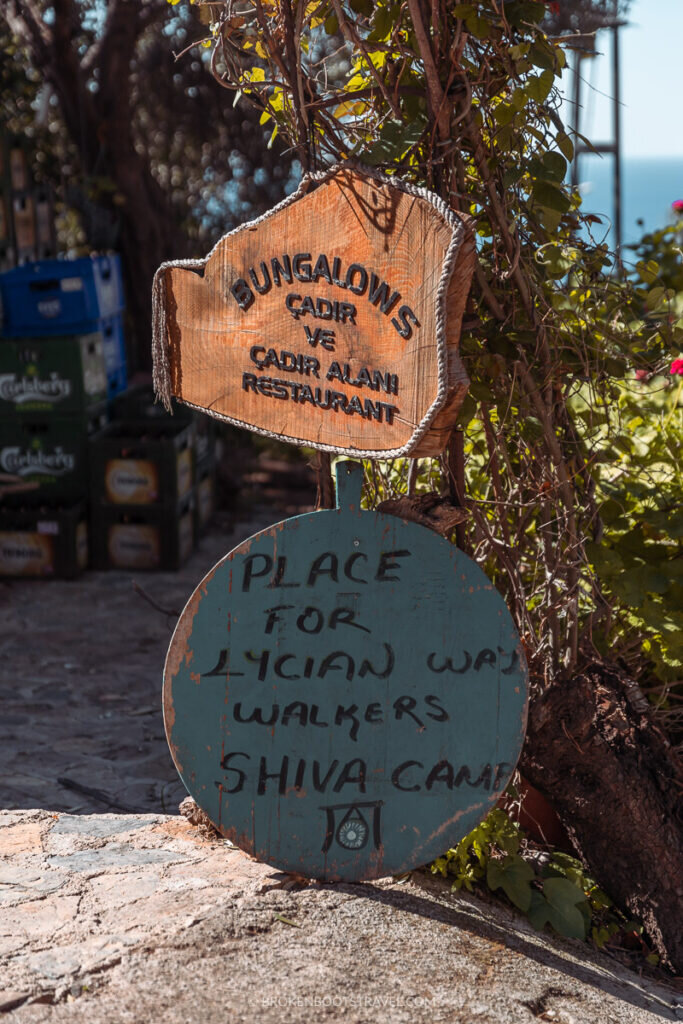 BUNGALOWS
ÇADIR
VE
ÇADIR ALANI
RESTAURANT
PLACE
FOR
LYCIAN WAY
WALKERS
SHIVA CAMP
Carlsberg
Carlsberg
© BROKENBOOTSTRAVEL.COM